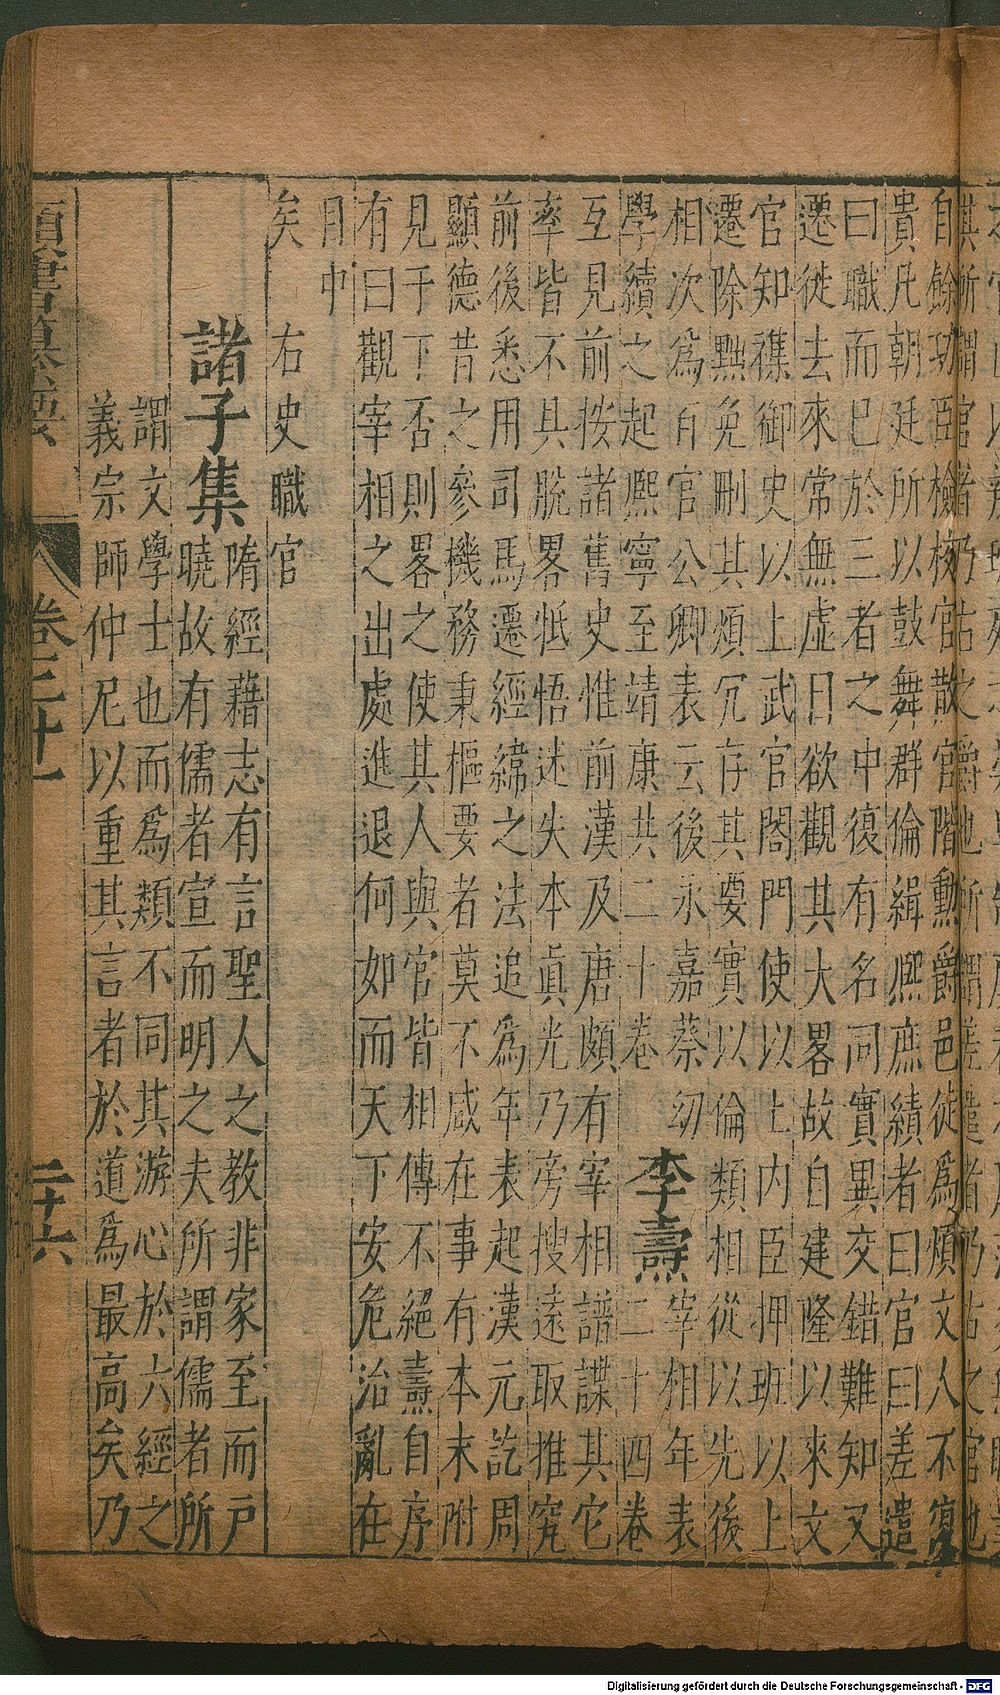 其所謂官者乃古之爵也所謂差遣者乃古之官也
自餘功臣檢校官散官階勳爵邑徒為煩文人不復
貴凡朝廷所以鼓舞群倫緝熈庶績者曰官曰差遣
曰職而已於三者之中復有名同實異交錯難知又
遷徙去來常無虛日欲觀其大畧故自建隆以來文
官知襍御史以上武官閤門使以上内臣押班以上
遷除㸃免刪其煩冗存其要實以倫類相從以先後
相次為百官公卿表云後永嘉蔡幼
學續之起熈寧至靖康共二十卷
李燾
宰相年表
二十四卷
互見前按諸舊史惟前漢及唐頗有宰相譜諜其它
率皆不具脫畧牴牾迷失本眞光乃旁搜遠取推究
前後悉用司馬遷經緯之法追為年表起漢元訖周
顯德昔之參機務秉樞要者莫不咸在事有本末附
見于下否則畧之使其人與官皆相傳不絕燾自序
有曰觀宰相之出處進退何如而天下安危治亂在
目中
矣 右史職官
諸子集
隋經藉志有言聖人之教非家至而戶
曉故有儒者宣而明之夫所謂儒者所
謂文學士也而為類不同其游心於六經之
義宗師仲尼以重其言者於道為最高矣乃
卷二十一
二十六
Digitalisierung gefördert durch die Deutsche Forschungsgemeinschaft - DFG